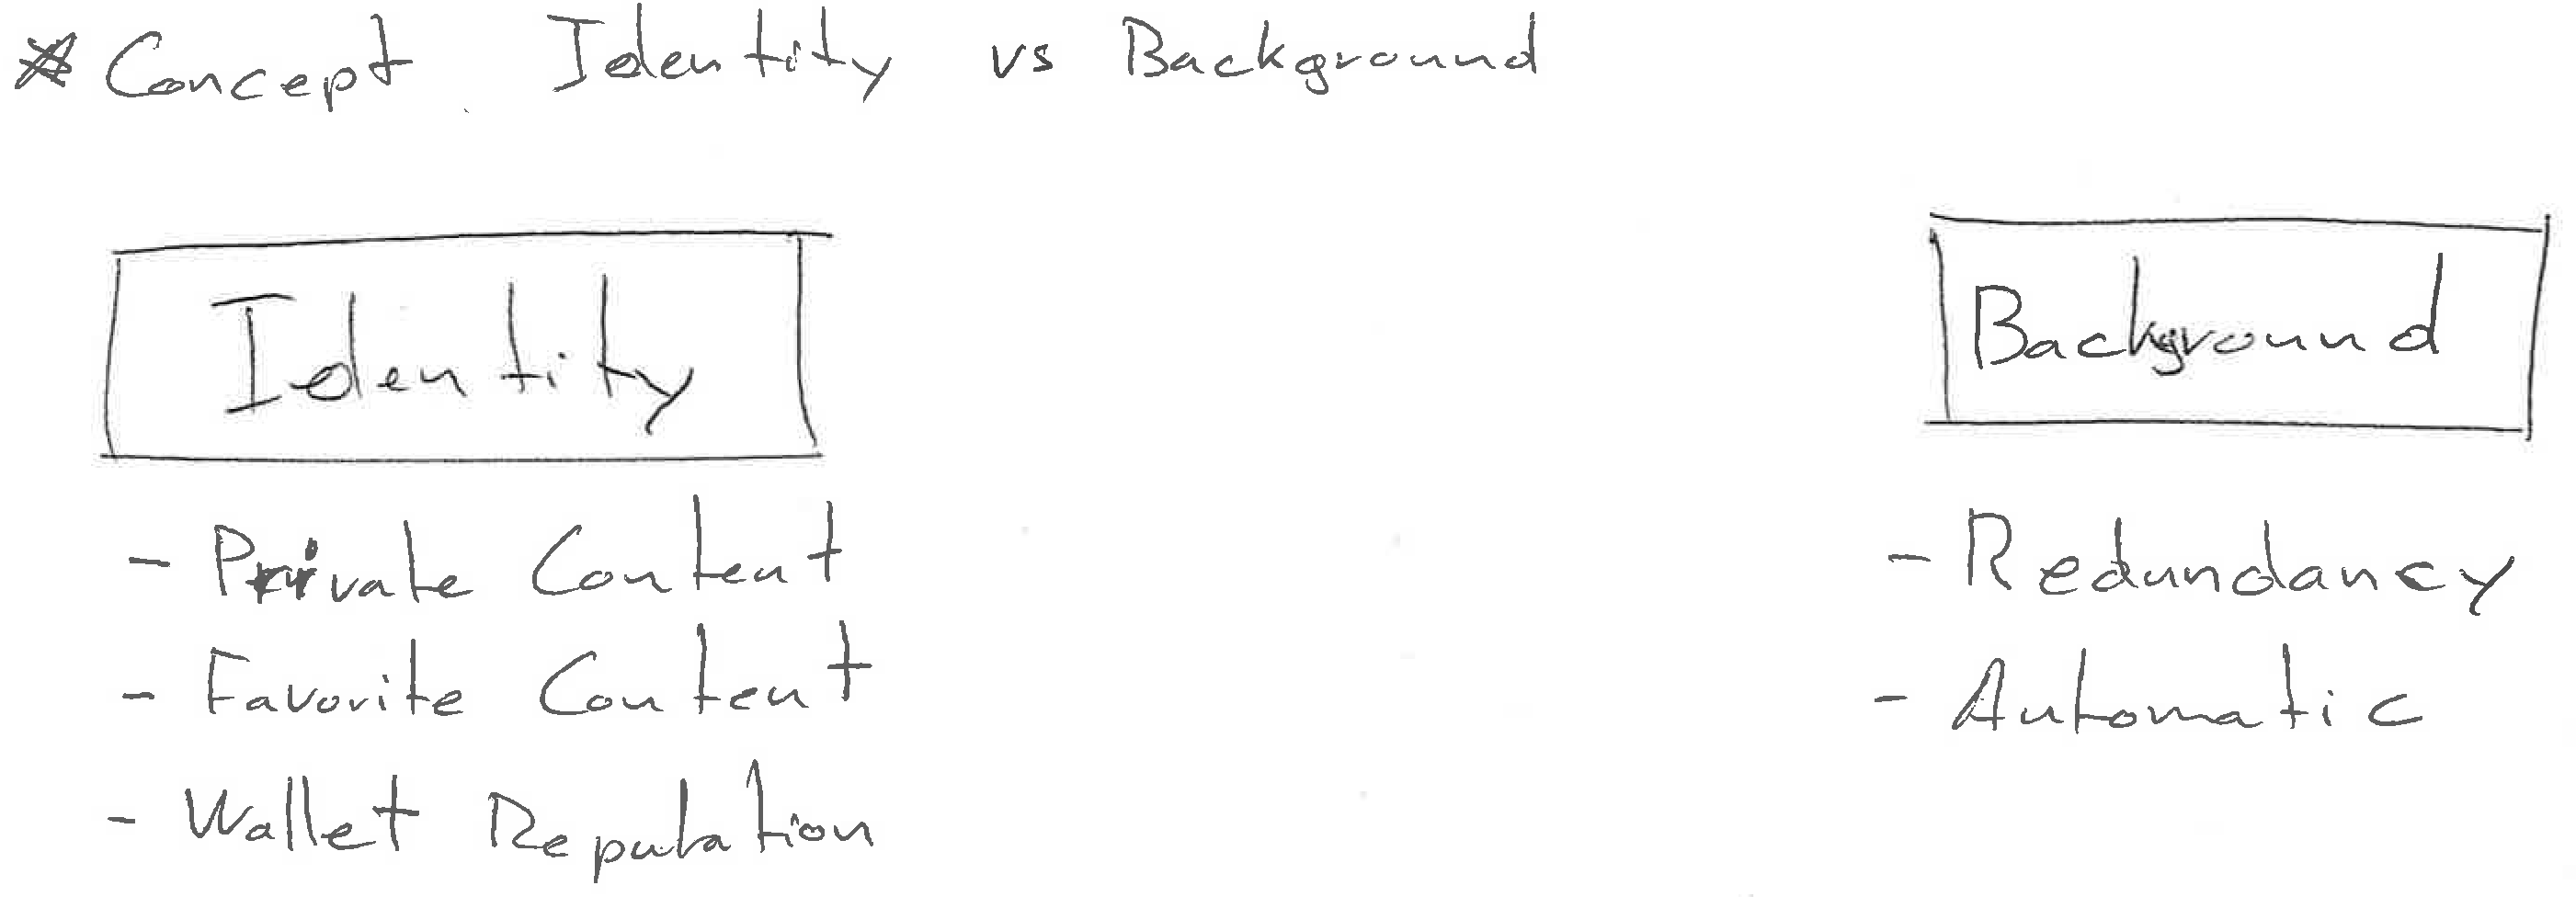 * Concept Identity vs Background
Identity
- Private Content
- Favorite Content
- Wallet Reputation
Background
- Redundancy
- Automatic